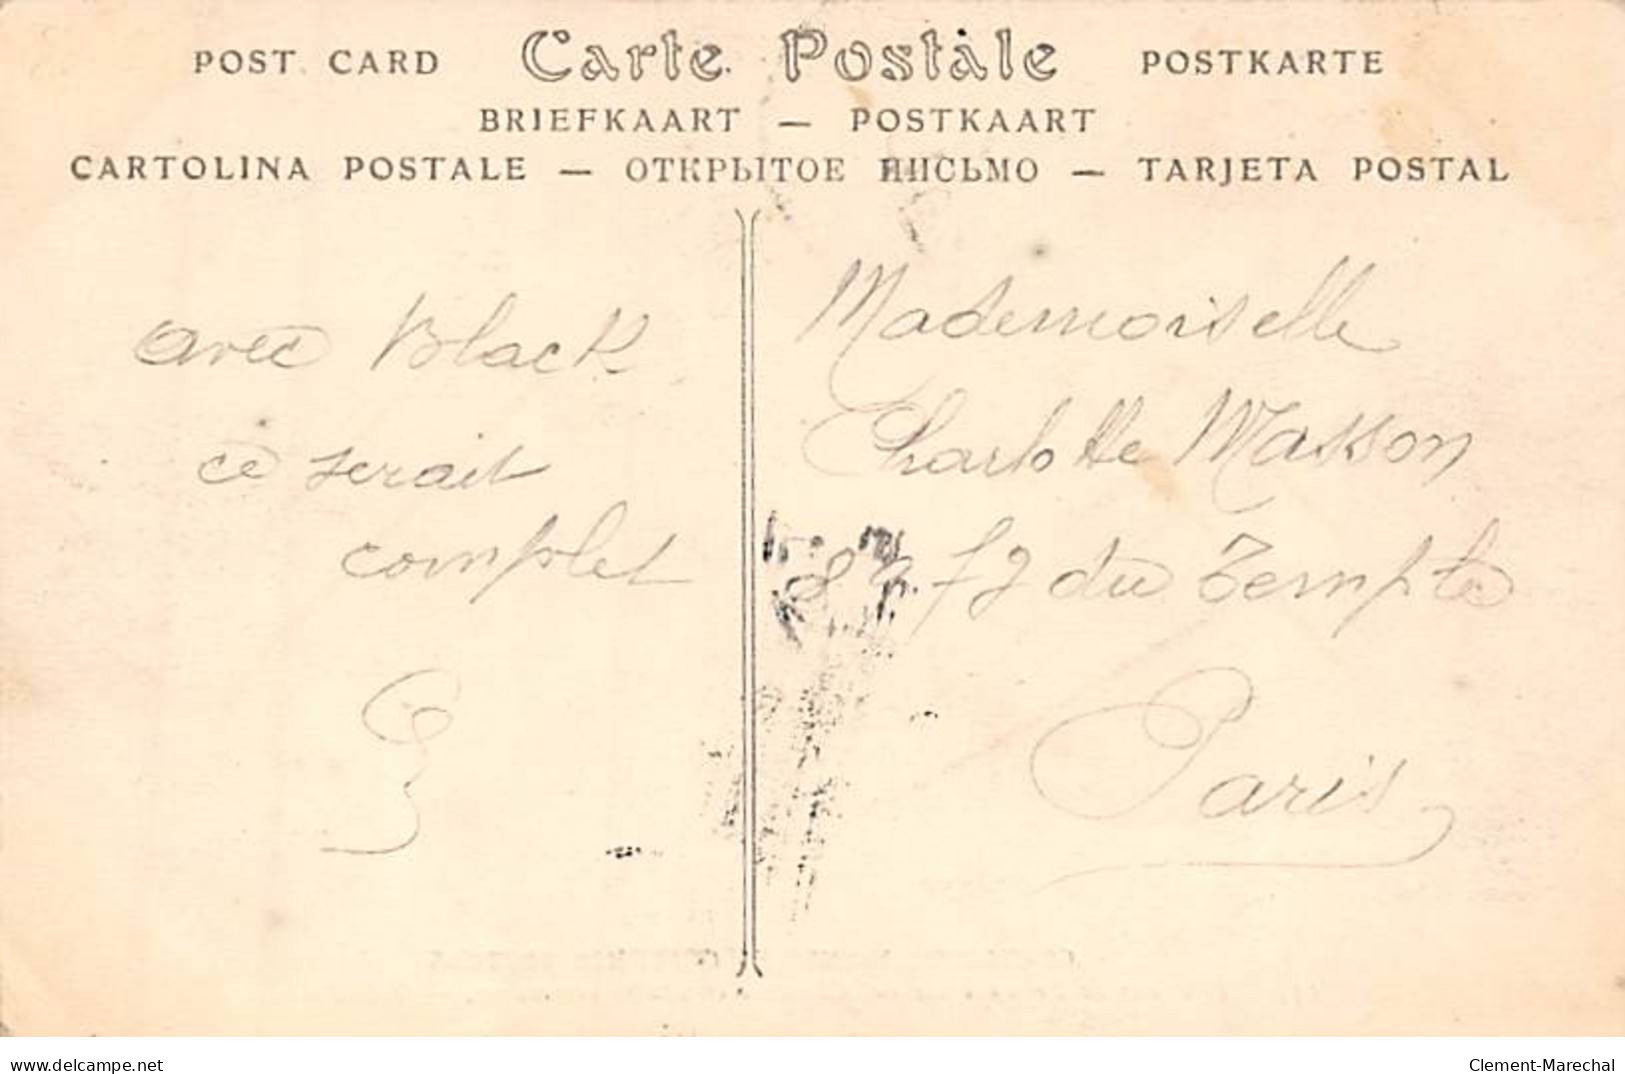 POST CARD Carte Postale POSTKARTE
BRIEFKAART — POSTKAART
CARTOLINA POSTALE — ОТКРЫТОЕ ПИСЬМО — TARJETA POSTAL
avec Black
ce serait
complet
Mademoiselle
Charlotte Masson
du Temple
Paris
delcampe.net
Clement-Marechal